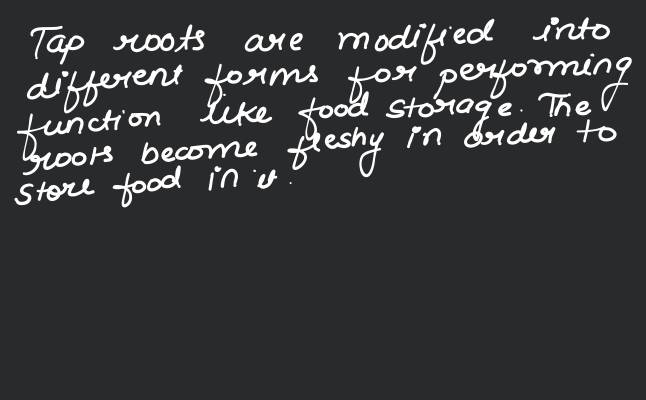 Tap roots are modified into
different forms for performing
function like food storage. The
roots become fleshy in order to
store food in it.